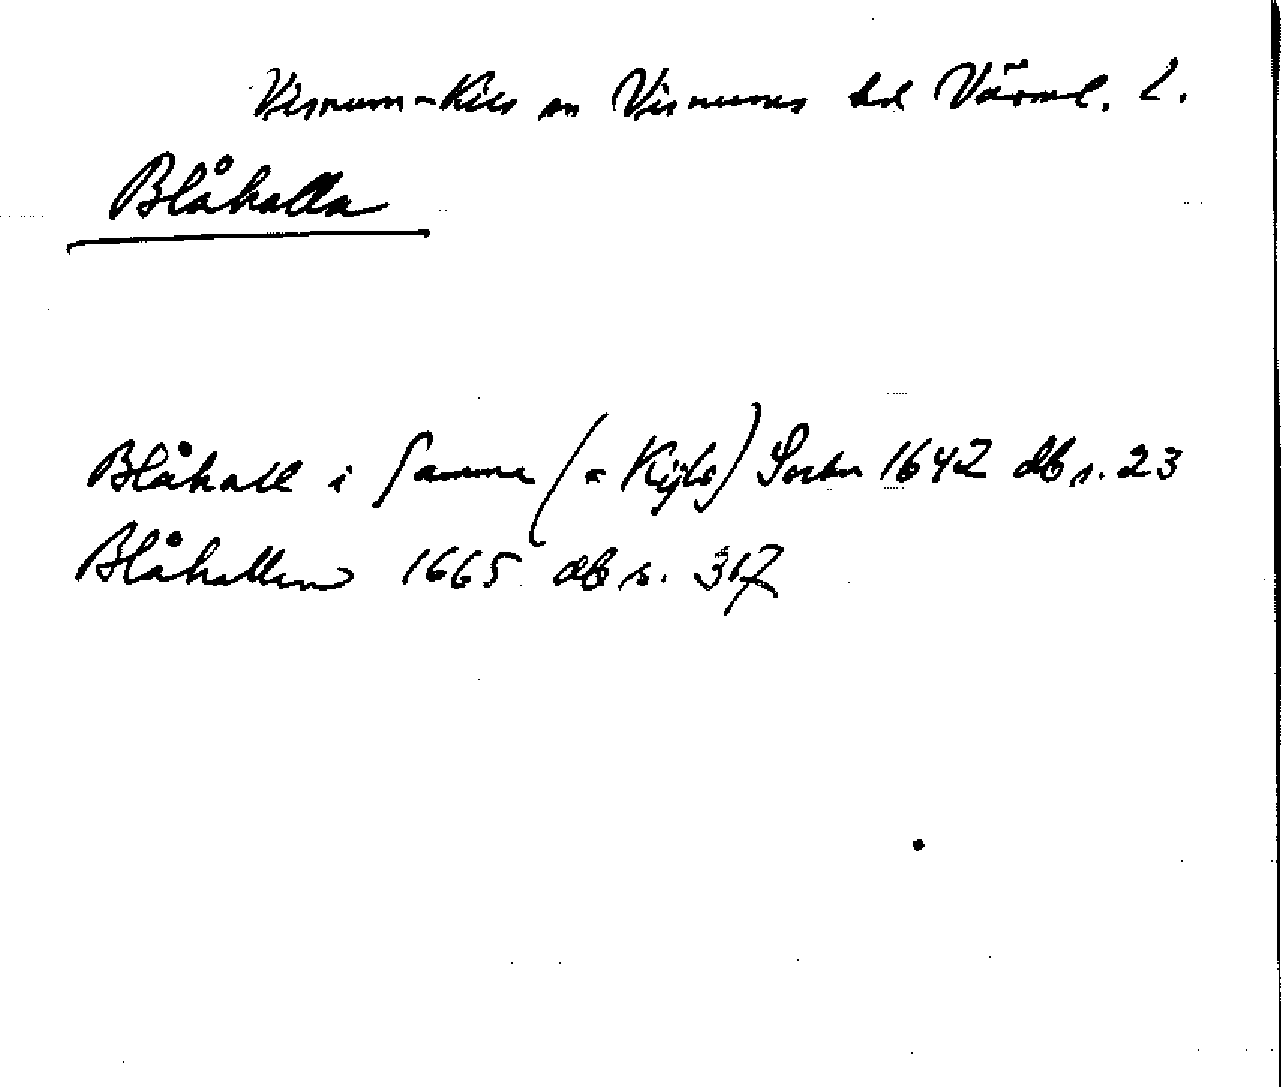 Visnum-Kils sn Visnums hd Värml. l.
Blåhalla
Blåhall i samme (= Kijls) Sochn 1642 db s. 23
Blåhallen 1665 db s. 317